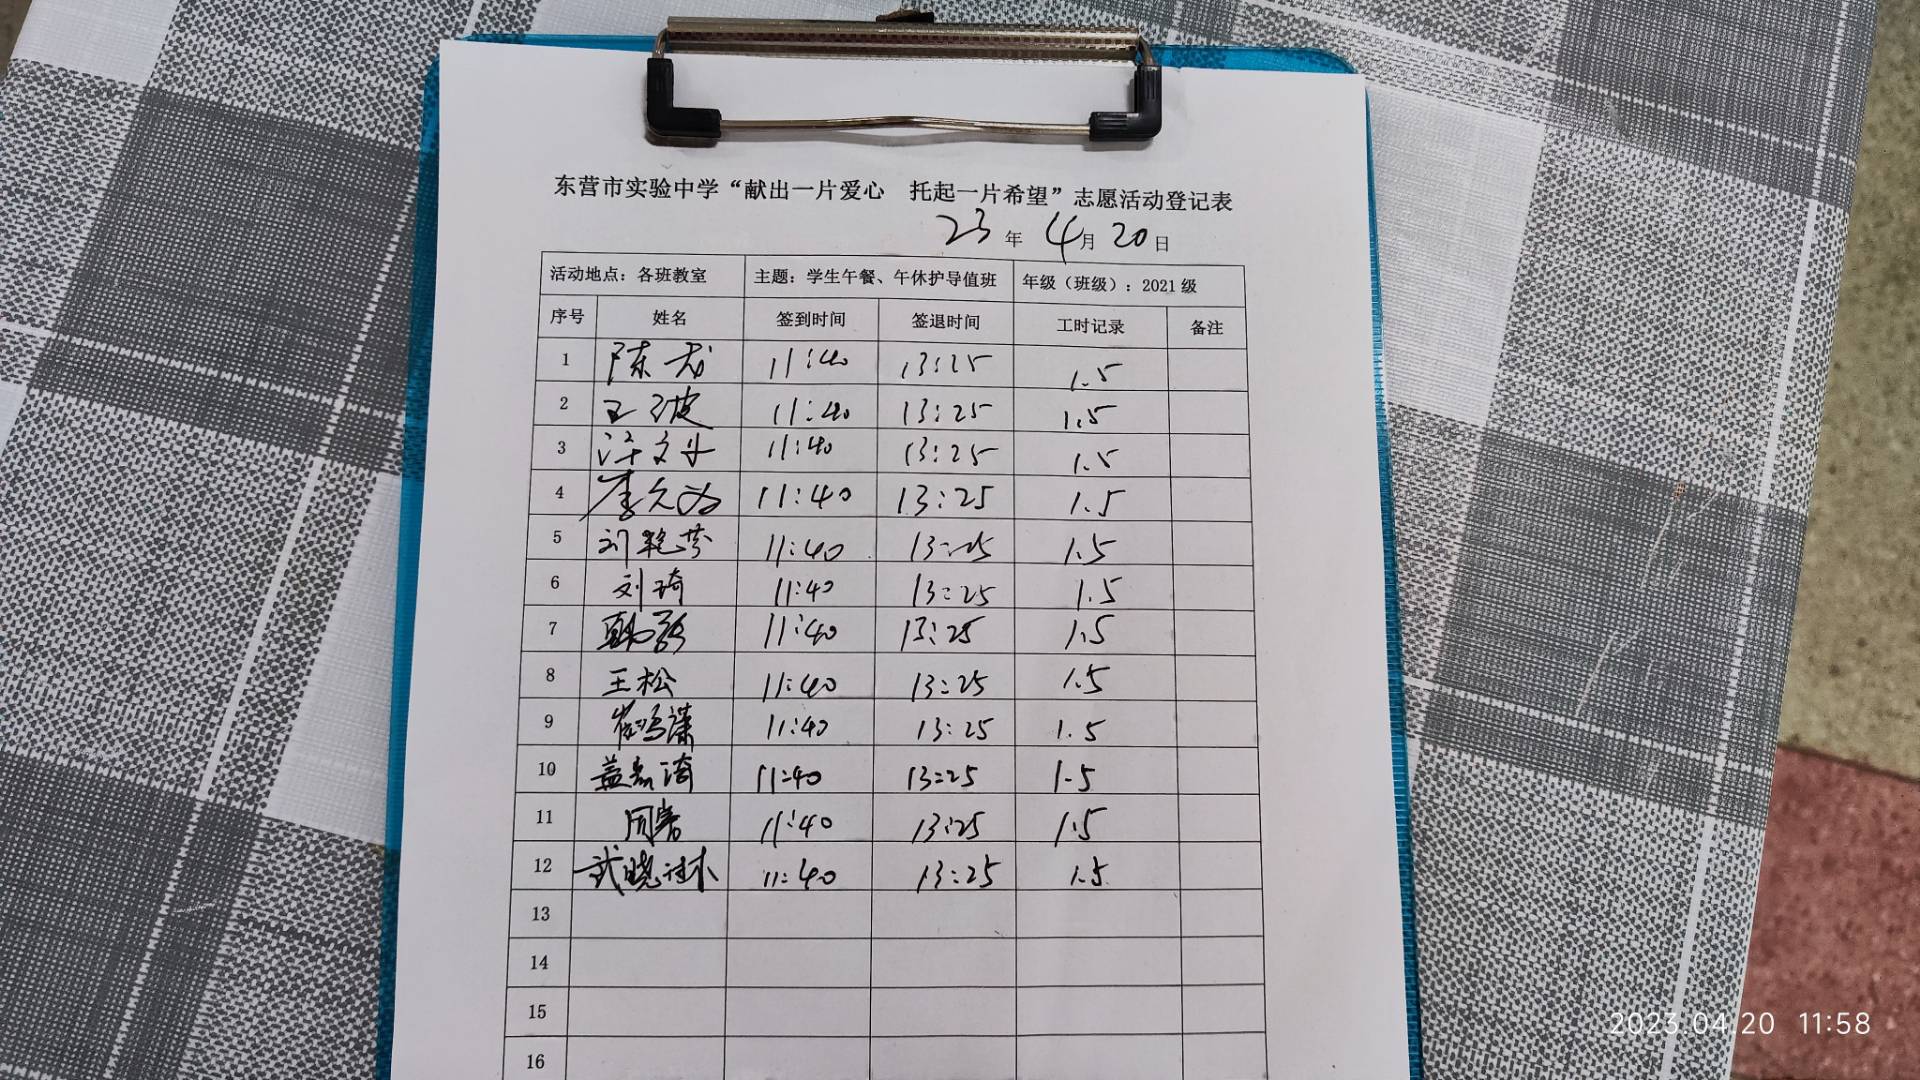 东营市实验中学“献出一片爱心 托起一片希望”志愿活动登记表
23年 4月 20日
活动地点：各班教室 主题：学生午餐、午休护导值班 年级（班级）：2021级
序号 姓名 签到时间 签退时间 工时记录 备注
1 陈龙 11:40 13:25 1.5
2 王 11:40 13:25 1.5
3 11:40 13:25 1.5
4 李 11:40 13:25 1.5
5 刘艳芬 11:40 13:25 1.5
6 刘琦 11:40 13:25 1.5
7 11:40 13:25 1.5
8 王松 11:40 13:25 1.5
9 崔 11:40 13:25 1.5
10 盖 11:40 13:25 1.5
11 周 11:40 13:25 1.5
12 武晓 11:40 13:25 1.5
13
14
15
16
2023.04.20 11:58